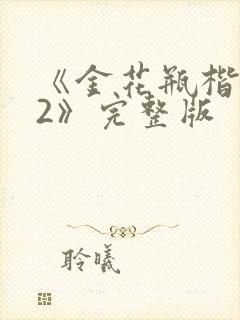 《金花瓶楷
2》完整版
聆曦